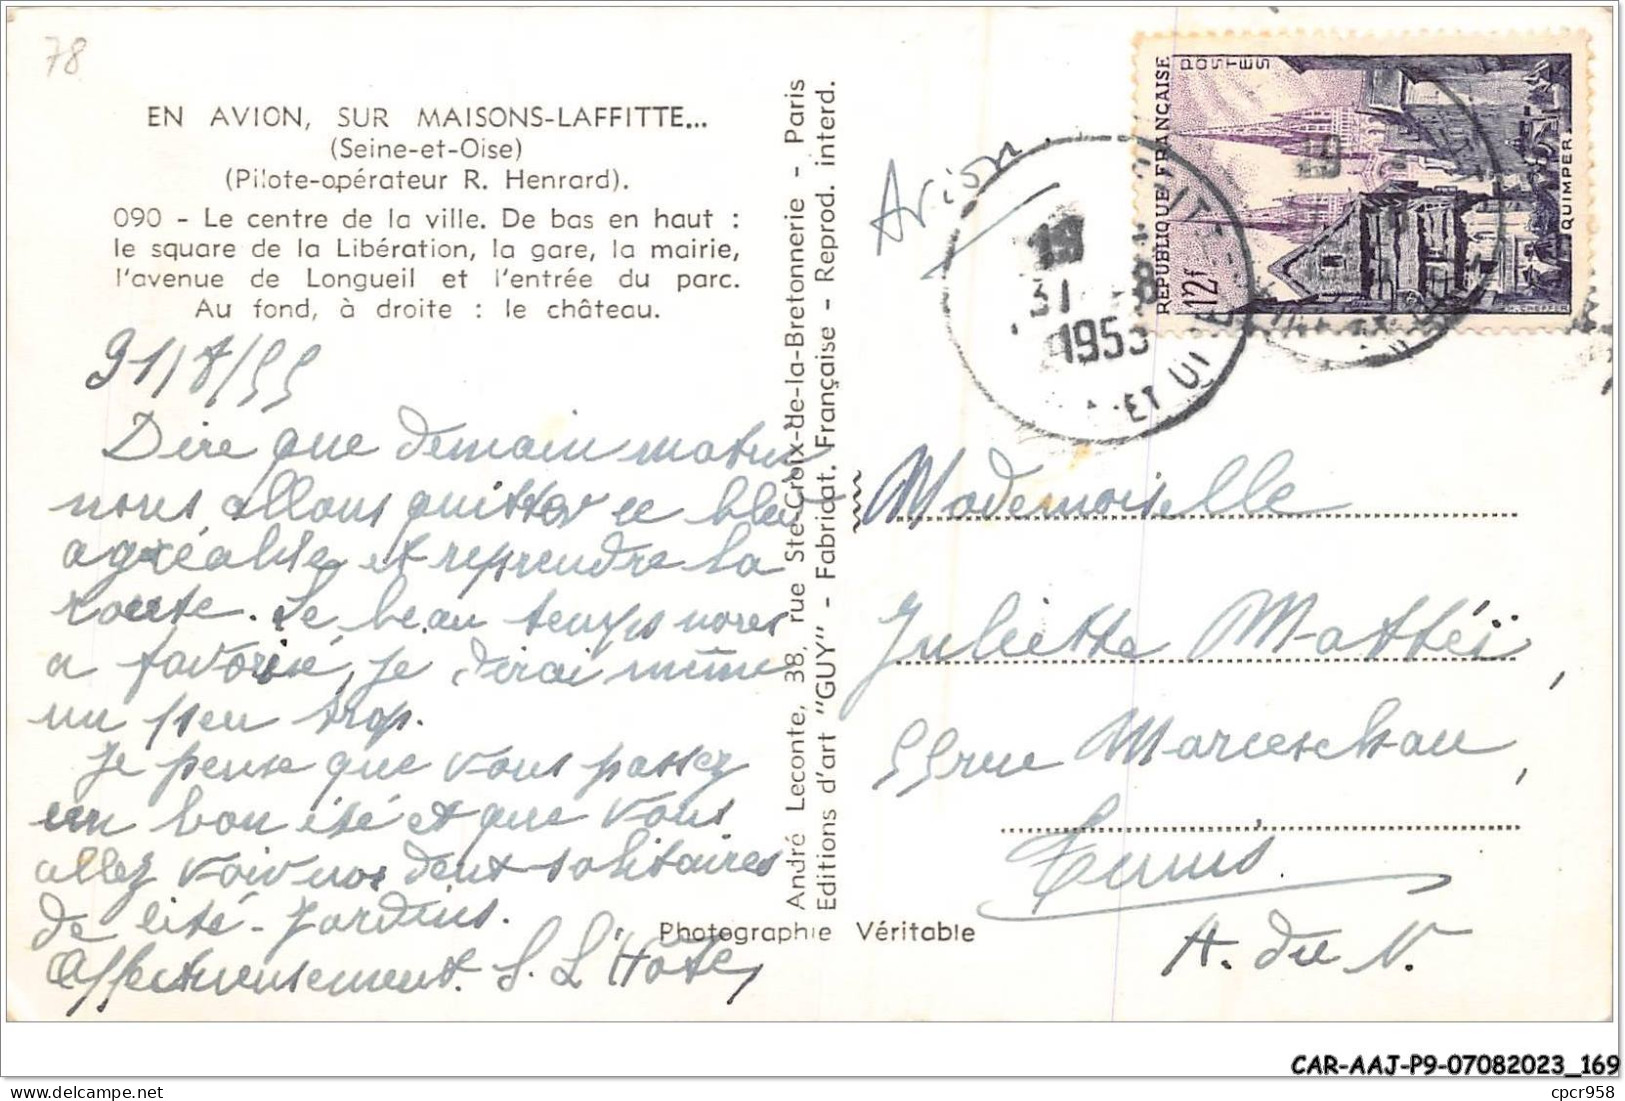 78
EN AVION, SUR MAISONS-LAFFITTE...
(Seine-et-Oise)
(Pilote-opérateur R. Henrard).
090 - Le centre de la ville. De bas en haut :
le square de la Libération, la gare, la mairie,
l'avenue de Longueil et l'entrée du parc.
Au fond, à droite : le château.
31/8/55
Dire que demain matin
nous allons quitter ce bled
agréable et reprendre la
route. Le beau temps nous
a favorisé, je dirai même
un peu trop.
Je pense que vous passez
un bon été et que vous
allez voir nos deux solitaires
de cité-jardins.
Affectueusement. S. L'Hôte,
André Leconte, 38, rue Ste-Croix-de-la-Bretonnerie - Paris
Editions d'art "GUY" - Fabricat. Française - Reprod. interd.
Photographie Véritable
Avion
19
31 - 8
1955
ET OI
REPUBLIQUE FRANÇAISE
POSTES
12f
QUIMPER
CHEFFER
Mademoiselle
Juliette Mattéï,
55 rue Marceschau,
Tunis.
A. du N.
CAR-AAJ-P9-07082023_169
cpcr958